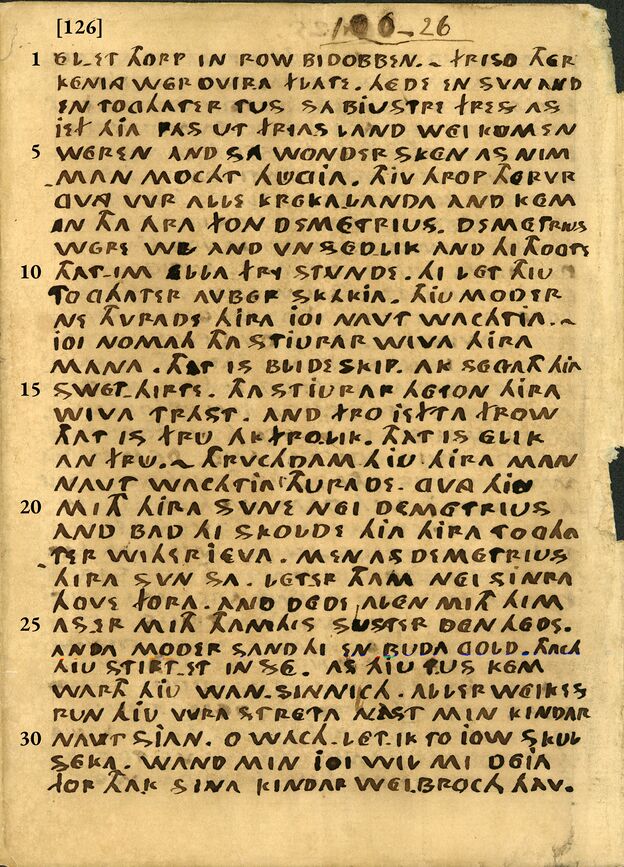 [126]
126
1 EL.ET THORP IN ROW BIDOBBEN. ~ FRISO THER
KENIG WER OVIRA FLATE. HEDE EN SVN AND
EN TOGHATER TUS SA BIUSTRE FRES AS
IEF HIA PAS UT FRIAS LAND WEI KUMEN
5 WEREN AND SA WONDER SKEN AS NIM
MAN MOCHT HUGIA. THIU HROP THERVR
GVNG VVR ALLE KREKALANDA AND KEM
IN THA ARA FON DEMETRIUS. DEMETRIUS
WERE WL AND VNSEDLIK AND HI THOGTE
10 THAT.IM ELLA FRY STVNDE. HI LET THIU
TOGHATER AVBER SKAKIA. THIU MODER
NE THVRADE HIRA IOI NAVT WACHTIA. ~
IOI NOMATH THA STIURAR WIVA HIRA
MANA. THAT IS BLIDESKIP. AK SEGATH HIA
15 SWET.HIRTE. THA STIURAR HETON HIRA
WIVA TRAST. AND FRO IEFTA FROW
THAT IS FRU AK FROLIK. THAT IS ELIK
AN FRU. ~ THRVCHDAM HIU HIRA MAN
NAVT WACHTIA THVRADE. GVNG HIU
20 MITH HIRA SVNE NEI DEMETRIUS
AND BAD HI SKOLDE HIA HIRA TOGHA
TER WIHERIEVA. MEN AS DEMETRIUS
HIRA SVN SA. LETER THAM NEI SINRA
HOVE FORA. AND DEDE ALEN MITH HIM
25 ASER MITH THAM HIS SUSTER DEN HEDE.
ANDA MODER SAND HI EN BUDA GOLD. THACH
HIU STIRT.ET IN SE. AS HIU TUS KEM
WARTH HIU WAN.SINNICH. ALLERWEIKES
RUN HIU VVRA STRETA NAST MIN KINDAR
30 NAVT SIAN. O WACH.LET.IK TO IOW SKUL
SEKA. WAND MIN IOI WIL MI DEIA
FOR THAK SINA KINDAR WEIBROCH HAV.